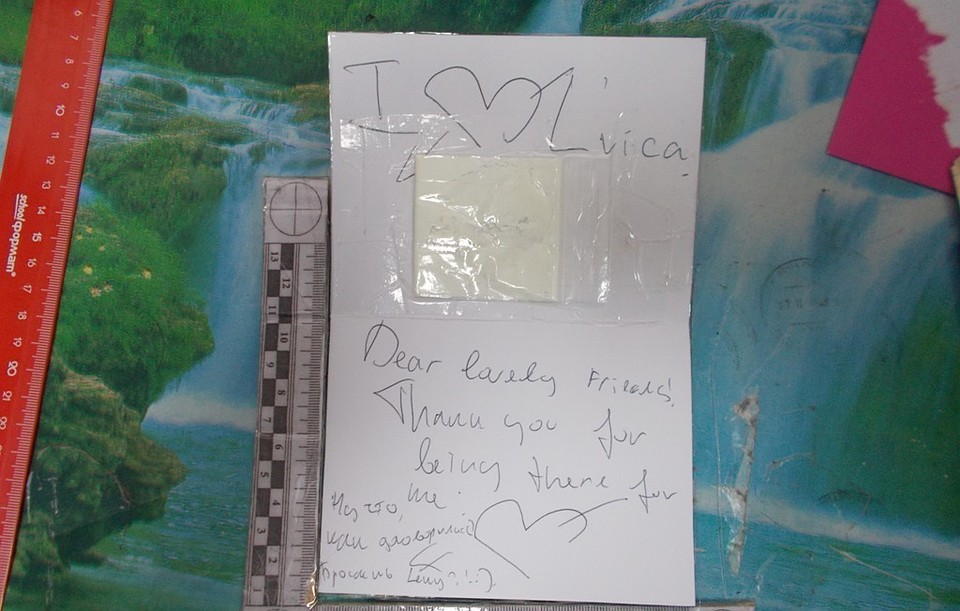 I L'vica
Dear lovely Friends!
Thank you for
being there for
me.
Ну что,
как договорились?
Бросаешь
6 7 8 9 10 11 12 13 14 15 16 17 18 19 20 21 22
school формат
13 12 11 10 9 8 7 6 5 4 3 2 1